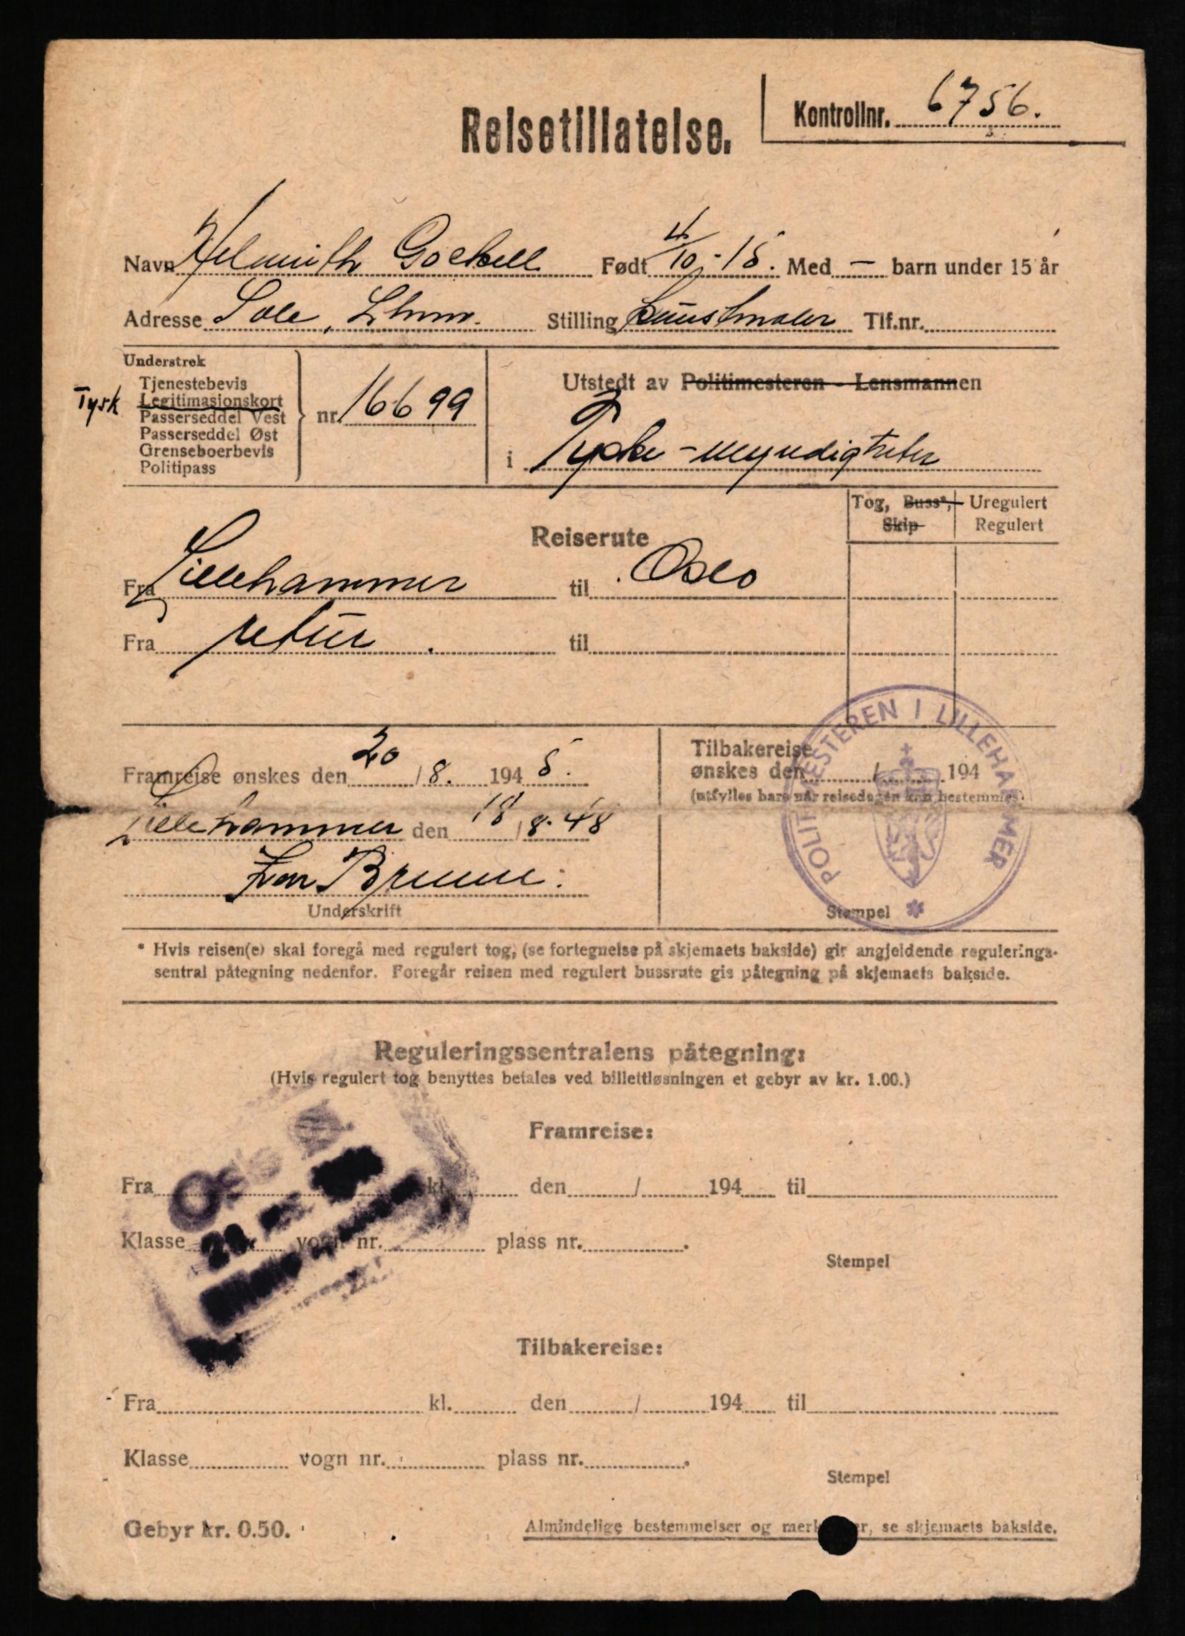 Kontrollnr. 6756.
Reisetillatelse.
Navn Helmuth Gockell Født 4/10-15. Med — barn under 15 år
Adresse Sole, Lhmr. Stilling Kunstmaler Tlf.nr.
Understrek
Tjenestebevis
Tysk Legitimasjonskort
Passerseddel Vest
Passerseddel Øst
Grenseboerbevis
Politipass
nr. 16699
Utstedt av Politimesteren - Lensmannen
i Tyske-myndigheter
Tog, Buss*, Skip
Uregulert
Regulert
Reiserute
Fra Lillehammer til Oslo
Fra retur. til
Framreise ønskes den 20/8. 1945.
Lillehammer den 18/8-48
Underskrift
Tilbakereise
ønskes den / 194
(utfylles bare når reisedagen kan bestemmes.
POLITIMESTEREN I LILLEHAMMER
Stempel
* Hvis reisen(e) skal foregå med regulert tog, (se fortegnelse på skjemaets bakside) gir angjeldende regulerings-
sentral påtegning nedenfor. Foregår reisen med regulert bussrute gis påtegning på skjemaets bakside.
Reguleringssentralens påtegning:
(Hvis regulert tog benyttes betales ved billettløsningen et gebyr av kr. 1.00.)
Framreise:
Fra kl. den / 194 til
Klasse vogn nr. plass nr. .
Stempel
Oslo Ø
Tilbakereise:
Fra kl. den / 194 til
Klasse vogn nr. plass nr. .
Stempel
Gebyr kr. 0.50.
Almindelige bestemmelser og se skjemaets bakside.